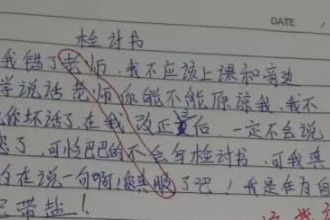 DATE
检讨书
我错了老师，我不应该上课和旁边
学说话老师你能不能原谅我，我不
你坏话了，在我改正后，一定不会说
了，可怜巴巴的不会写检讨书，可我
在说一句啊！您
了吧！我是在为自
带盐！